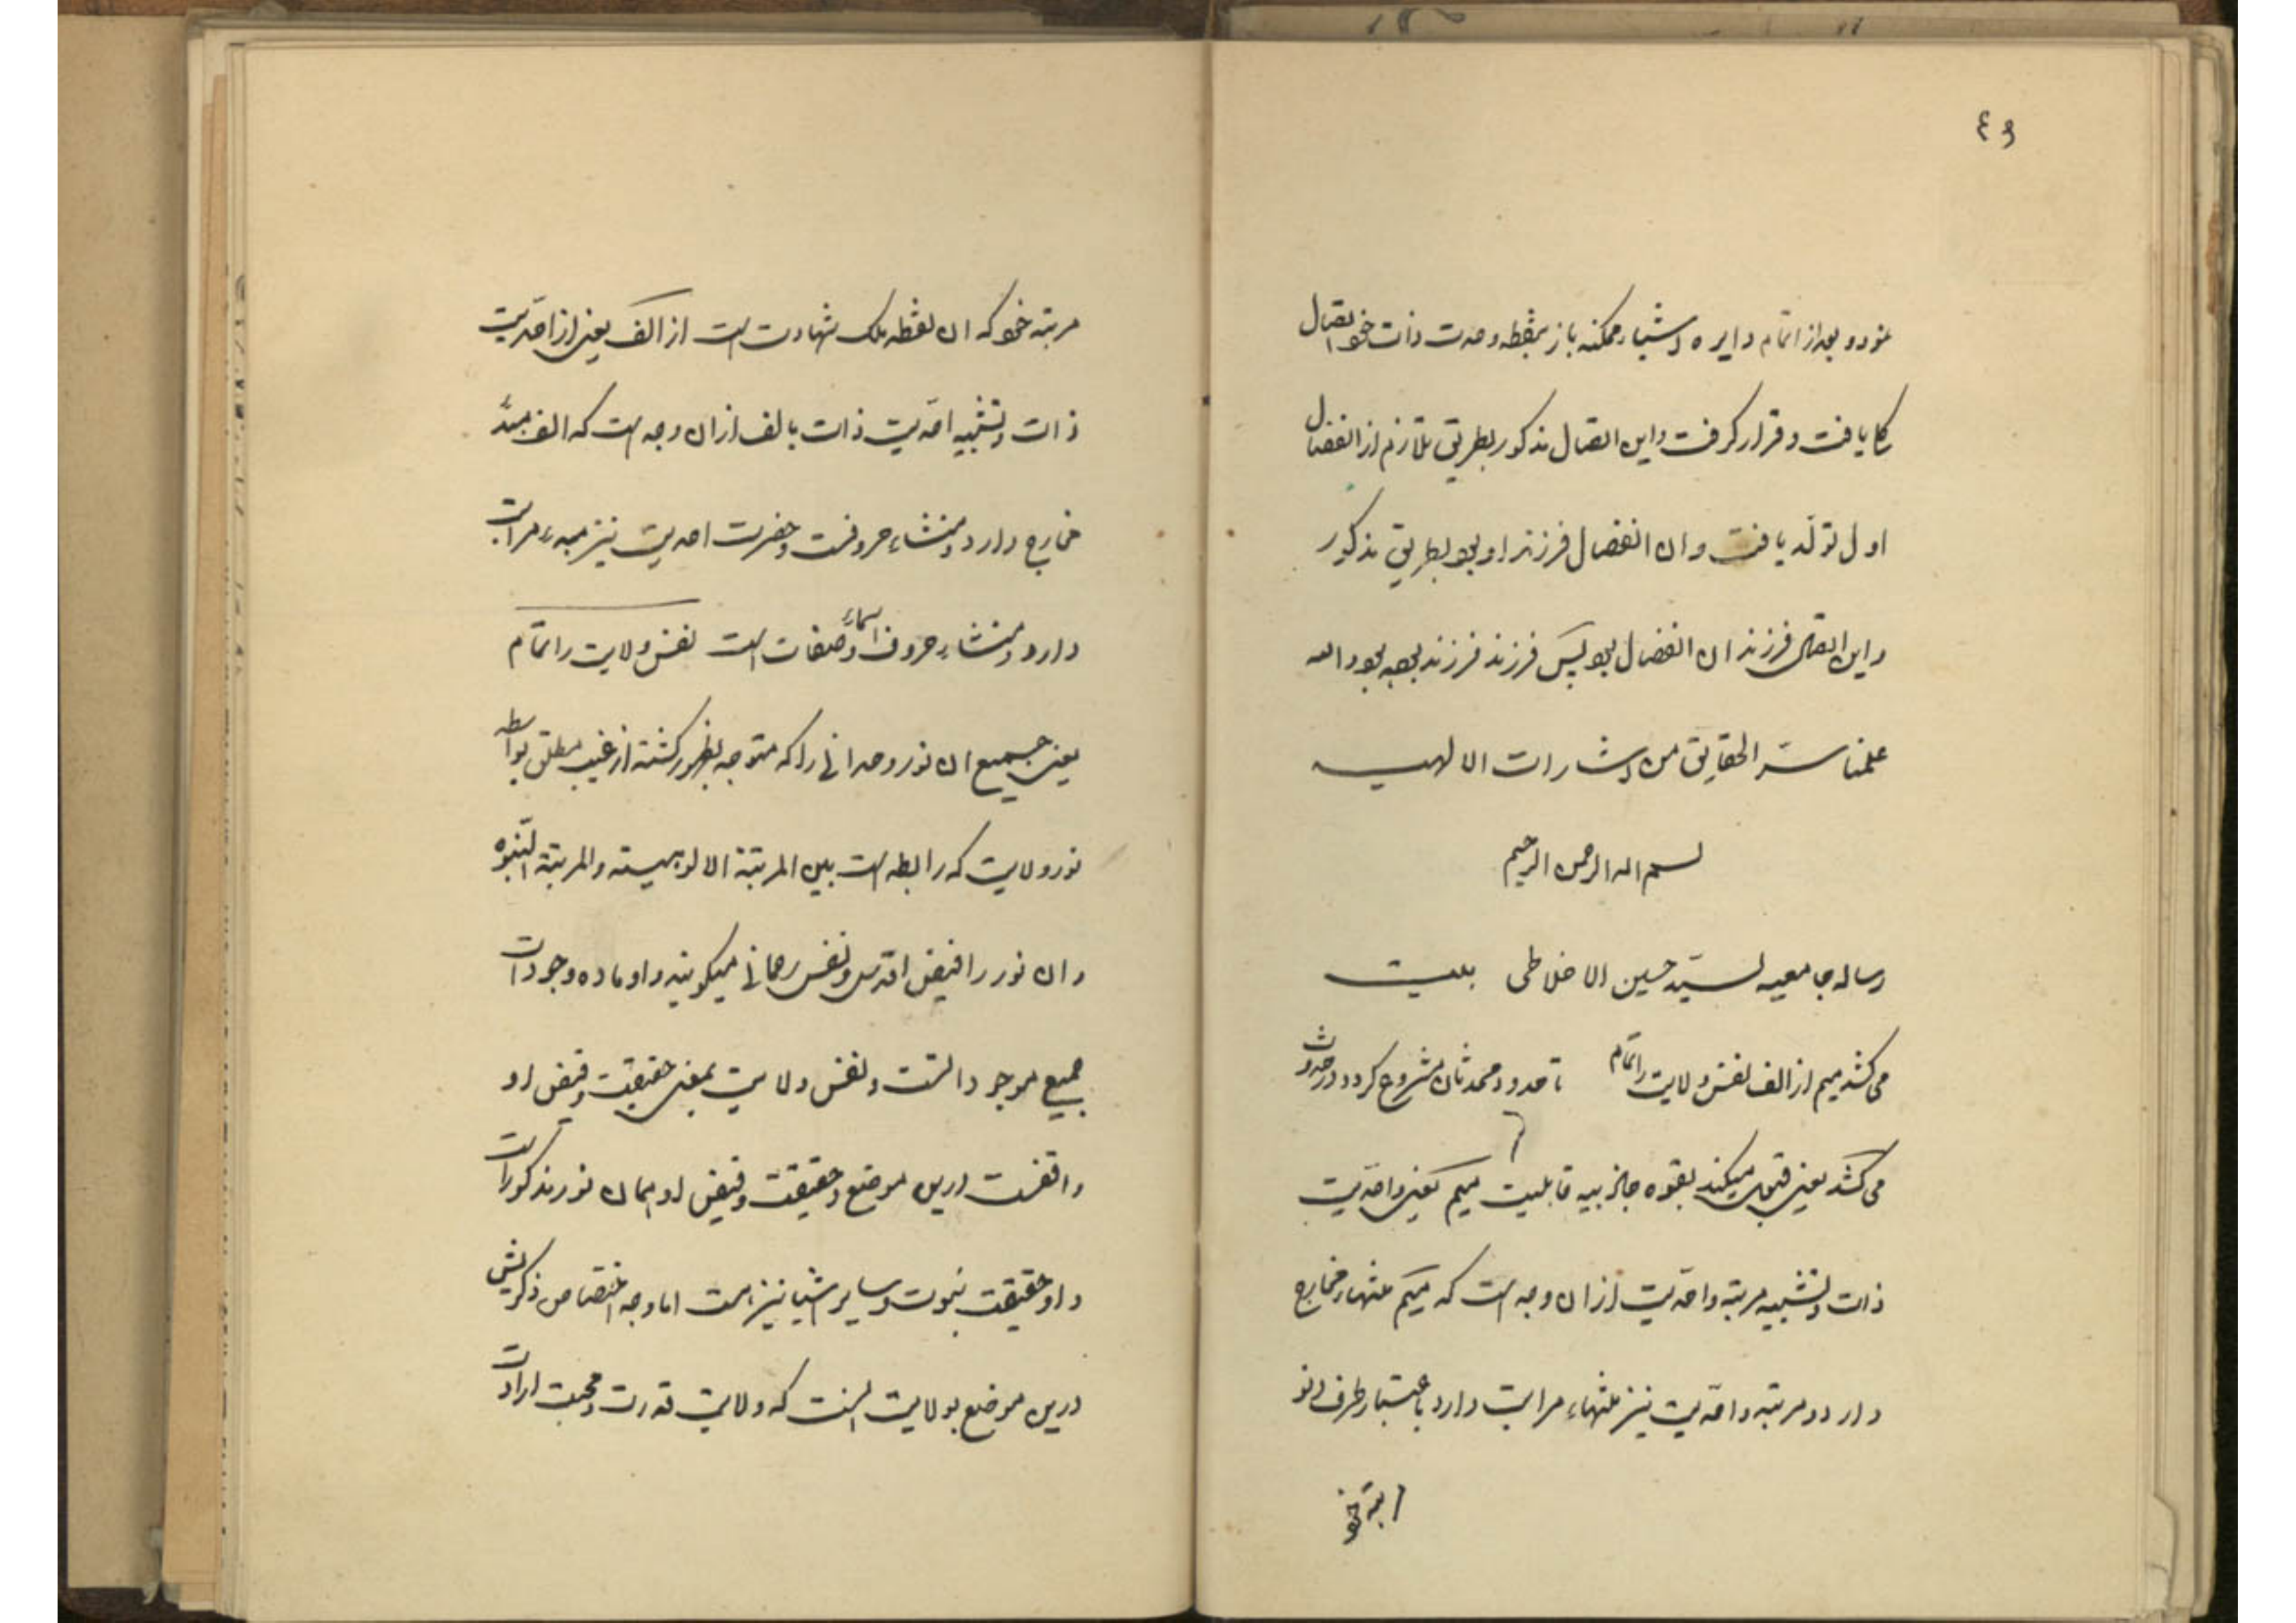 نمود و بعد از اتمام دایره اشیاء ممکنه باز بنقطه وحدت ذات خود اتصال
کلی یافت و قرار گرفت و این اتصال مذکور بطریق تلازم از انفصال
اول تولّد یافت و ان انفصال فرزند او بود بطریق مذکور
و این اتصال فرزند ان انفصال بود پس فرزند فرزند بود الله
علمنا سرّ الحقایق من اشارات الالهیه
بسم الله الرحمن الرحیم
رساله جامعیه لسیّد حسین الاخلاطی بیت
می کشد میم از الف نفس ولایت را تمام تا حدود محمدثان مشروح کردد در حدوث
می کشد یعنی قبول میکند بقوه جاذبیه قابلیت میم یعنی واحدیت
ذات و تشبیه مرتبه واحدیت از ان وجه است که میم منتهاء مخارج
دارد و مرتبه واحدیت نیز منتهاء مراتب دارد باعتبار طرف
مرتبه خود
مرتبه خود که ان نقطه ملک شهادت است از الف یعنی از احدیّت
ذات و تشبیه احدیّت ذات بالف از ان وجه است که الف مبدء
مخارج دارد و منشاء حروفست و حضرت احدیت نیز مبدء مراتب
دارد و منشاء حروف اسماء و صفات است نفس ولایت را تمام
یعنی جمیع ان نور وحدانی را که متوجه بظهور کشته از غیب مطلق بواسطه
نور ولایت که رابطه است بین المرتبة الالوهیته والمرتبة النّبوه
و ان نور را فیض اقدس و نفس رحمانی میکویند و او ماده وجودات
جمیع موجوداتست و نفس ولایت بمعنی حقیقت و فیض او
واقعست درین موضع و حقیقت و فیض او همان نور مذکور است
و او حقیقت نبوت و سایر اشیا نیز هست اما وجه اختصاص ذکرش
درین موضع بولایت انست که ولایت قدرت و محبت ارادت